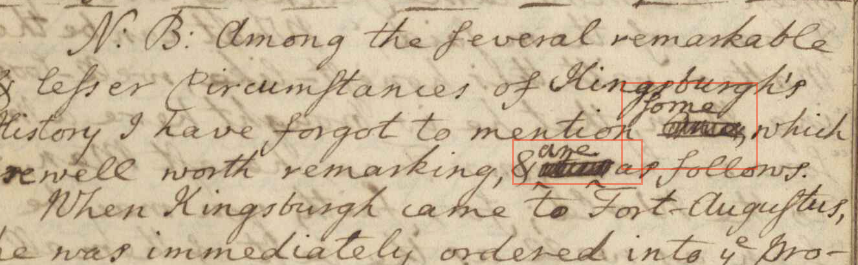 N: B: Among the several remarkable
& lesser Circumstances of Kingsburgh's
some
History I have forgot to mention which
are
well worth remarking, & as follows.
When Kingsburgh came to Fort-Augustus,
he was immediately ordered into yᵉ pro-